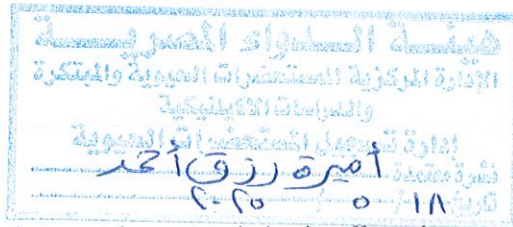 هيئة الدواء المصرية
الإدارة المركزية للمستحضرات الحيوية والمبتكرة
والدراسات الاكلينيكية
إدارة تسجيل المستحضرات الحيوية
نشرة معتمدة أميرة رزق أحمد
تاريخ ١٨ / ٥ / ٢٠٢٥